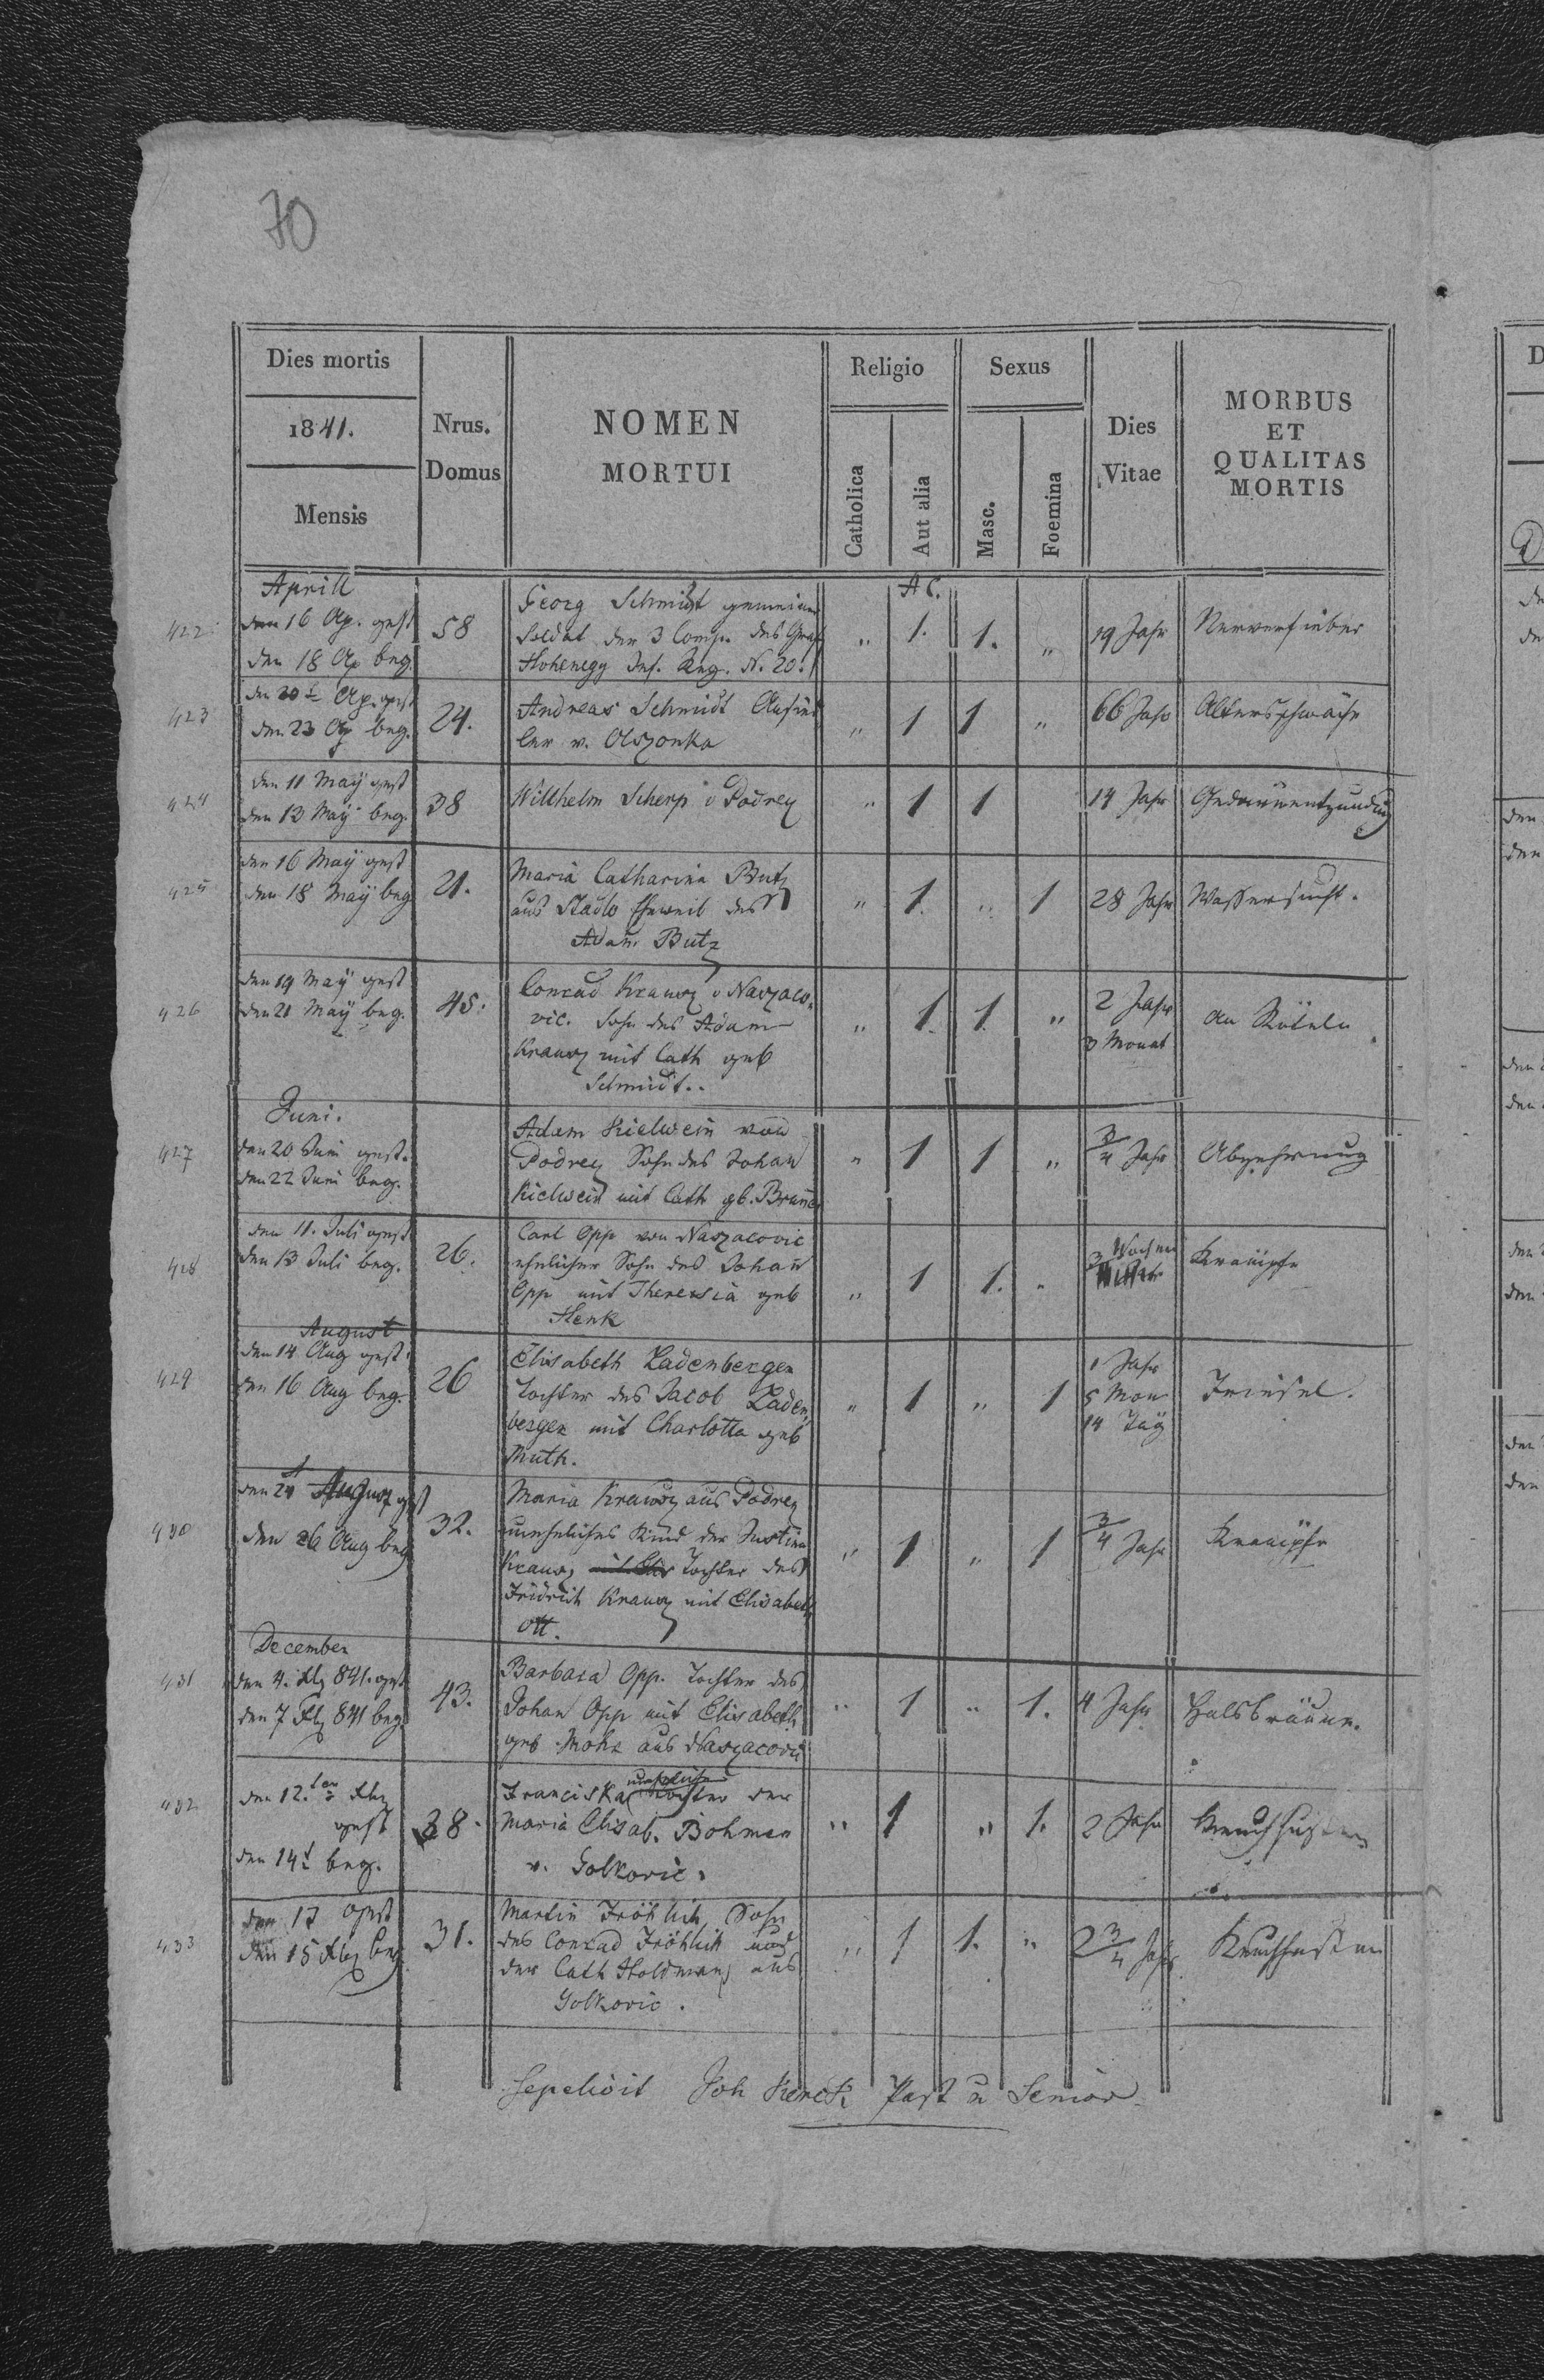 70
Dies mortis
1841.
Mensis
Nrus.
Domus
NOMEN
MORTUI
Religio
Catholica
Aut alia
Sexus
Masc.
Foemina
Dies
Vitae
MORBUS
ET
QUALITAS
MORTIS
Aprill
A C.
422
den 16 Ap. gest
den 18 Ap beg.
58
Georg Schmidt gemeiner
Soldat der 3 Comp. des Graf
Hohenegg Inf. Reg. N. 20.
„ 1. 1. „
19 Jahr
Nervenfieber
423
den 20t Ap. gest
den 23 Ap beg.
24.
Andreas Schmidt Ansied
ler v. Olszonka
„ 1 1 „
66 Jahr
Altersschwäche
424
den 11 May gest
den 13 May beg.
38
Willhelm Scherp v Podrey
„ 1 1
14 Jahr
Gedärmentzundung
425
den 16 May gest
den 18 May beg
21.
Maria Catharina Butz
aus Stadlo Eheweib des
Adam Butz
„ 1. „ 1
28 Jahr
Wassersucht.
426
den 19 May gest
den 21 May beg.
45.
Conrad Krausz v Naszaco-
vic. Sohn des Adam
Krausz mit Cath geb
Schmidt..
„ 1. 1. „
2 Jahr
3 Monat
an Röteln
Juni.
427
den 20 Juni gest.
den 22 Juni beg.
Adam Kielwein von
Podrey Sohn des Johan
Kielwein mit Cath gb. Brunner
„ 1 1 „
3/4 Jahr
Abzehrung
428
den 11. Juli gest
den 13 Juli beg.
26.
Carl Opp von Naszacovic
ehelicher Sohn des Johan
Opp mit Theresia geb
Henk
„ 1 1. „
3 Wochen
Krämpfe
August
429
den 14 Aug gest.
den 16 Aug beg.
26
Elisabeth Ladenberger
Tochter des Jacob Laden
berger mit Charlotta geb
Muth.
„ 1 „ 1
1 Jahr
5 Mon
14 Täg
Friesel.
430
den 24 August gest
den 26 Aug beg
32.
Maria Krausz aus Podrey
unehliches Kind der Justina
Krausz Tochter des
Fridrich Krausz mit Elisabeth
Ott.
„ 1 „ 1
3/4 Jahr
Krämpfe
December
431
den 4. Xbr 841. gest
den 7 Xbr 841 beg
43.
Barbara Opp. Tochter des
Johan Opp mit Elisabeth
geb Mohr aus Naszacovic
„ 1 „ 1.
4 Jahr
Halsbräune.
432
den 12.ten Xbr
gest
den 14t beg.
38.
uneheliche
Franciska Tochter der
Maria Elisab. Böhmer
v. Golkovic.
„ 1 „ 1.
2 Jahr
Keuchhusten
433
den 13 gest
den 15 Xbr beg
31.
Martin Fröhlich Sohn
des Conrad Fröhlich und
der Cath Holdman aus
Golkovic.
„ 1 1. „
2 3/4 Jahr
Keuchhusten
Sepelivit Joh Past u Senior